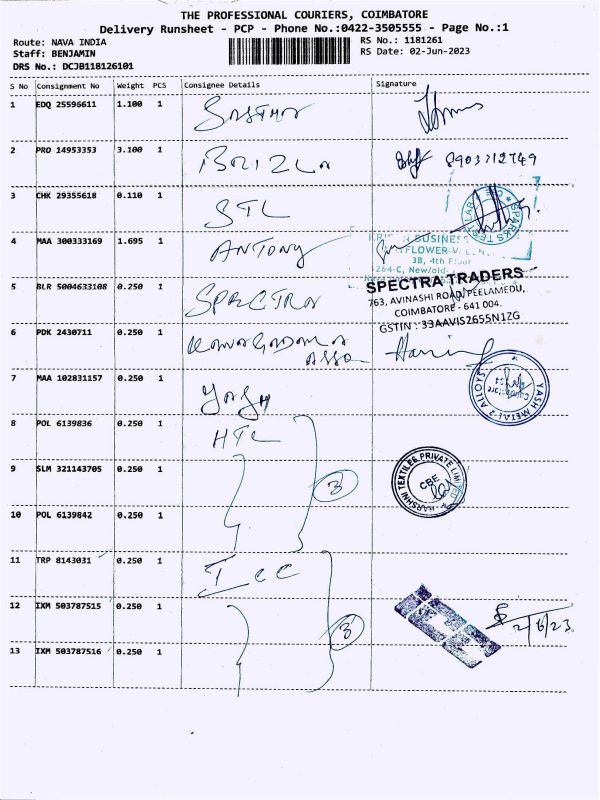 THE PROFESSIONAL COURIERS, COIMBATORE
Delivery Runsheet - PCP - Phone No.:0422-3505555 - Page No.:1
Route: NAVA INDIA
RS No.: 1181261
Staff: BENJAMIN
RS Date: 02-Jun-2023
DRS No.: DCJB118126101
S No Consignment No Weight PCS Consignee Details Signature
1 EDQ 25596611 1.100 1
2 PRO 14953353 3.100 1 8903712749
3 CHK 29355618 0.110 1 STL
4 MAA 300333169 1.695 1 ANTONY
BUSINESS
FLOWER
3B, 4th Floor
264-C, New/old-
5 BLR 5004633108 0.250 1 SPECTRA
SPECTRA TRADERS
763, AVINASHI ROAD, PEELAMEDU,
COIMBATORE - 641 004.
GSTIN : 33AAVIS2655N1ZG
6 PDK 2430711 0.250 1
ASSO
7 MAA 102831157 0.250 1 YASH
YASH METAL 2 ALLOYS
8 POL 6139836 0.250 1 HTL
9 SLM 321143705 0.250 1 3
HARSHNI TEXTILES PRIVATE LIMITED
CBE
10 POL 6139842 0.250 1
11 TRP 8143031 0.250 1 ICC
12 IXM 503787515 0.250 1 3
2/6/23
13 IXM 503787516 0.250 1